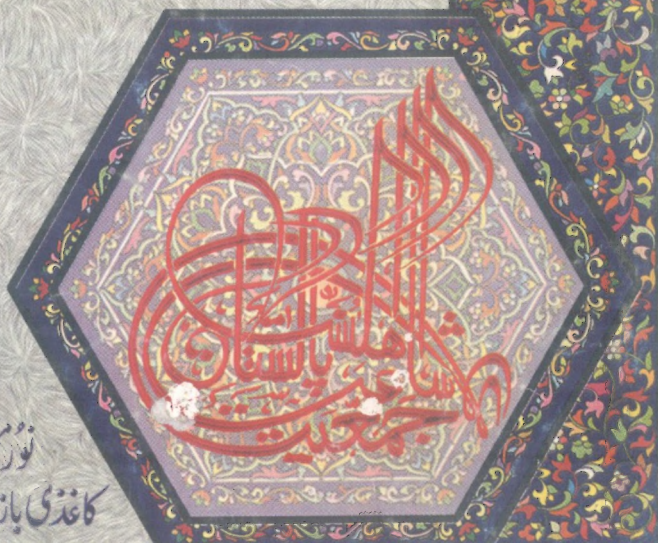 جمعیت اشاعت اهلسنت پاکستان
نُور
کاغذی باز